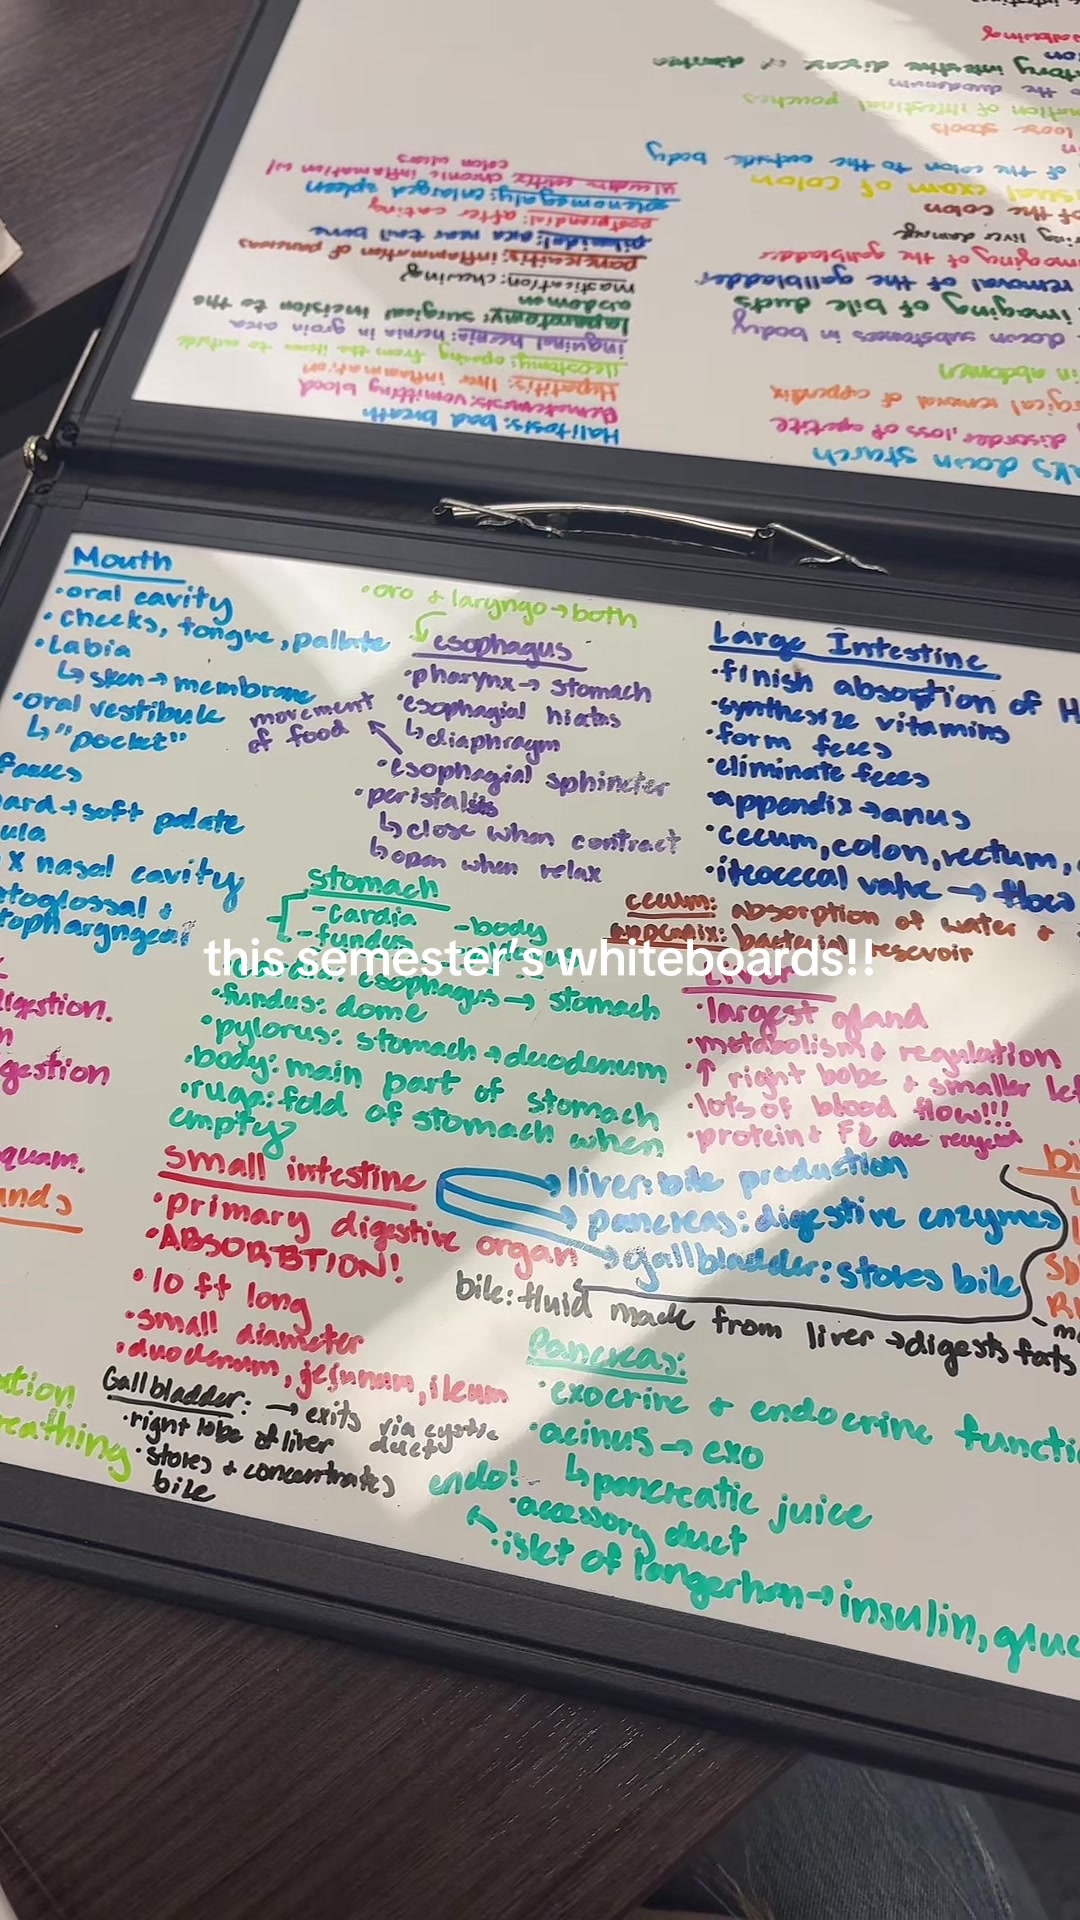 Halitosis: bad breath
Hematemesis: vomitting blood
Hepatitis: liver inflammation
ileostomy: opening from the ileum to outside
inguinal hernia: hernia in groin area
laparotomy: surgical incision to the
abdomen
mastication: chewing
pancreatitis: inflammation of pancreas
pilonidal: area near tail bone
postprandial: after eating
splenomegaly: enlarged spleen
ulcerative colitis: chronic inflammation w/
colon ulcers
down starch
disorder, loss of apetite
surgical removal of appendix
in abdomen
down substances in body
imaging of bile ducts
removal of the gallbladder
imaging of the gallbladder
liver damage
of the colon
visual exam of colon
of the colon to the outside body
loose stools
of intestinal pouches
to the duodenum
intestine disease c/ diarrhea
Mouth
•oral cavity
•cheeks, tongue, pallate
•Labia
↳ skin → membrane
•oral vestibule
↳ "pocket"
fauces
hard → soft palate
x nasal cavity
•oro & laryngo → both
esophagus
•pharynx → stomach
•esophagial hiatus
↳ diaphragm
•esophagial sphincter
•peristalsis
↳ close when contract
↳ open when relax
movement
of food
Large Intestine
•finish absorption of H
•synthesize vitamins
•form feces
•eliminate feces
•appendix → anus
•cecum, colon, rectum,
•ileocecal valve → flow
cecum: absorption of water &
appendix: bacterial reservoir
stomach
-cardia -body
-fundus
cardia: esophagus → stomach
•fundus: dome
•pylorus: stomach → duodenum
•body: main part of stomach
•ruga: fold of stomach when
empty
this semester's whiteboards!!
Liver
•largest gland
•metabolism & regulation
•↑ right lobe & smaller le
•lots of blood flow!!!
•protein & Fe are recycled
digestion.
gestion
quam.
small intestine
•primary digestive organ
•ABSORBTION!
•10 ft long
•small diameter
•duodenum, jejunum, ileum
→ liver: bile production
→ pancreas: digestive enzymes
→ gallbladder: stores bile
bile: fluid made from liver → digests fats
Gallbladder: → exits via cystic
duct
•right lobe of liver
•stores & concentrates
bile
Pancreas:
•exocrine & endocrine functi
•acinus → exo
↳ pancreatic juice
•accessory duct
endo!
•islet of langerhan → insulin, gluc